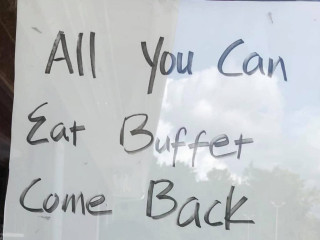 All You Can
Eat Buffet
Come Back